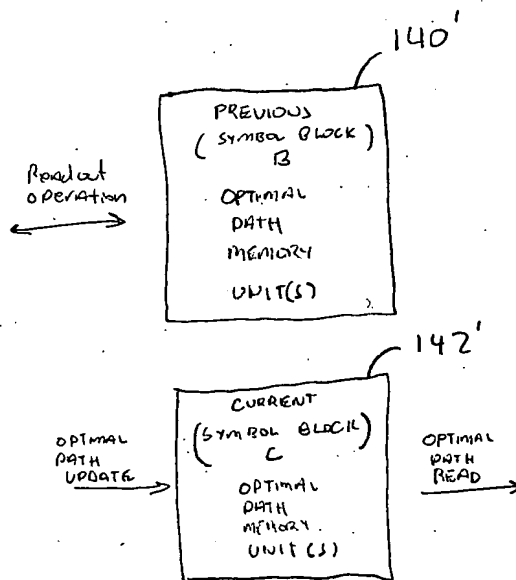 140'
PREVIOUS
(SYMBOL BLOCK)
B
OPTIMAL
PATH
MEMORY
UNIT(S)
Readout
OPERATION
142'
CURRENT
(SYMBOL BLOCK)
C
OPTIMAL
PATH
MEMORY
UNIT(S)
OPTIMAL
PATH
UPDATE
OPTIMAL
PATH
READ